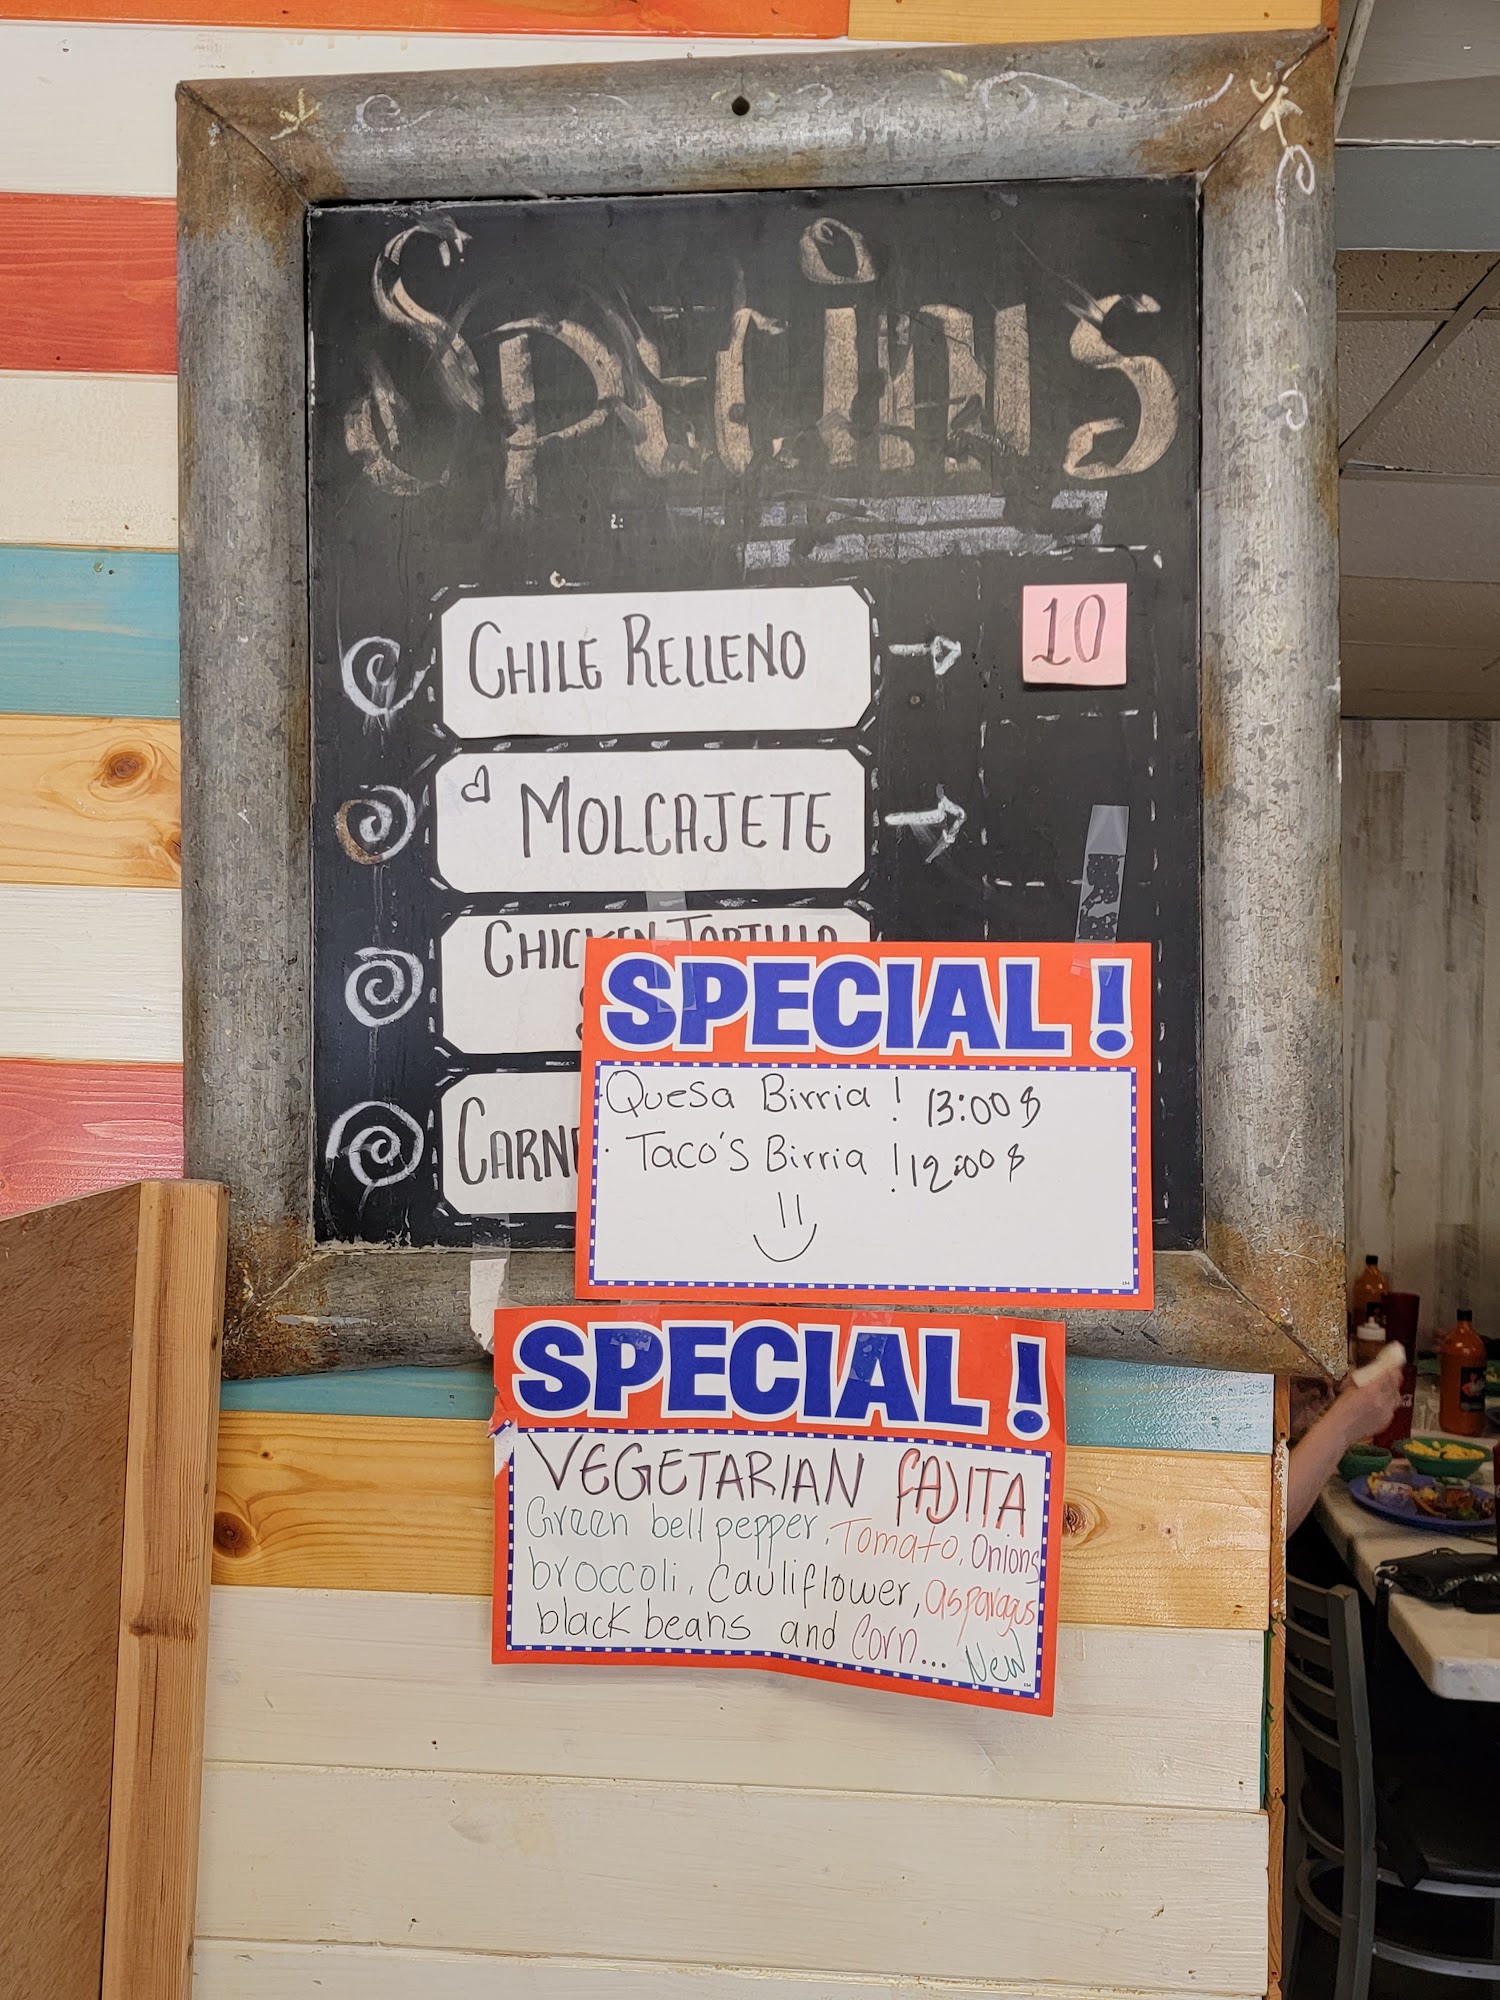 Specials
CHILE RELLENO
10
MOLCAJETE
CHICKEN TORTILLA
SPECIAL!
· Quesa Birria! 13:00$
· Taco's Birria! 12:00$
SPECIAL!
VEGETARIAN FAJITA
Green bell pepper, Tomato, Onions
broccoli, cauliflower, asparagus
black beans and Corn... New